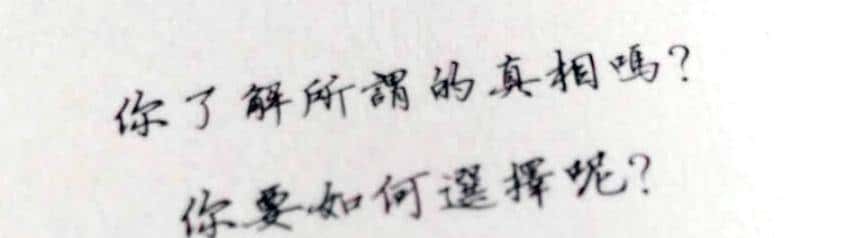 你了解所謂的真相嗎?
你要如何選擇呢?